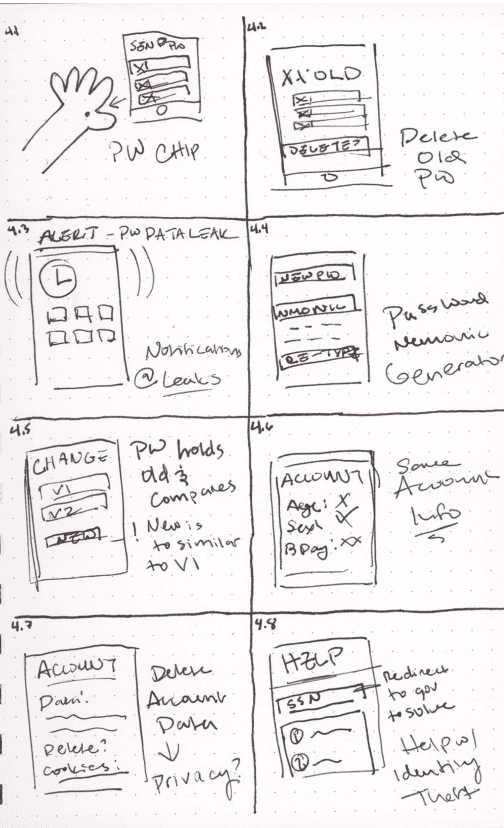 4.1
SEND PW
X1
PW CHIP
4.2
X1: OLD
X1
DELETE?
Delete
Old
PW
4.3
ALERT - PW DATA LEAK
Notifications
@ Leaks
4.4
NEW PW
NMONIC
RE-TYPE
Password
Nemonic
Generator
4.5
CHANGE
V1
V2
NEW
PW holds
old &
Compares
! New is
to similar
to V1
4.6
ACCOUNT
Age: X
Sex:
BDay: XX
Account
Info
4.7
ACCOUNT
Data:
Delete?
Cookies:
Delete
Account
Data
↓
Privacy?
4.8
HELP
SSN
1
2
Redirect
to gov
to solve
Help w/
Identity
Theft